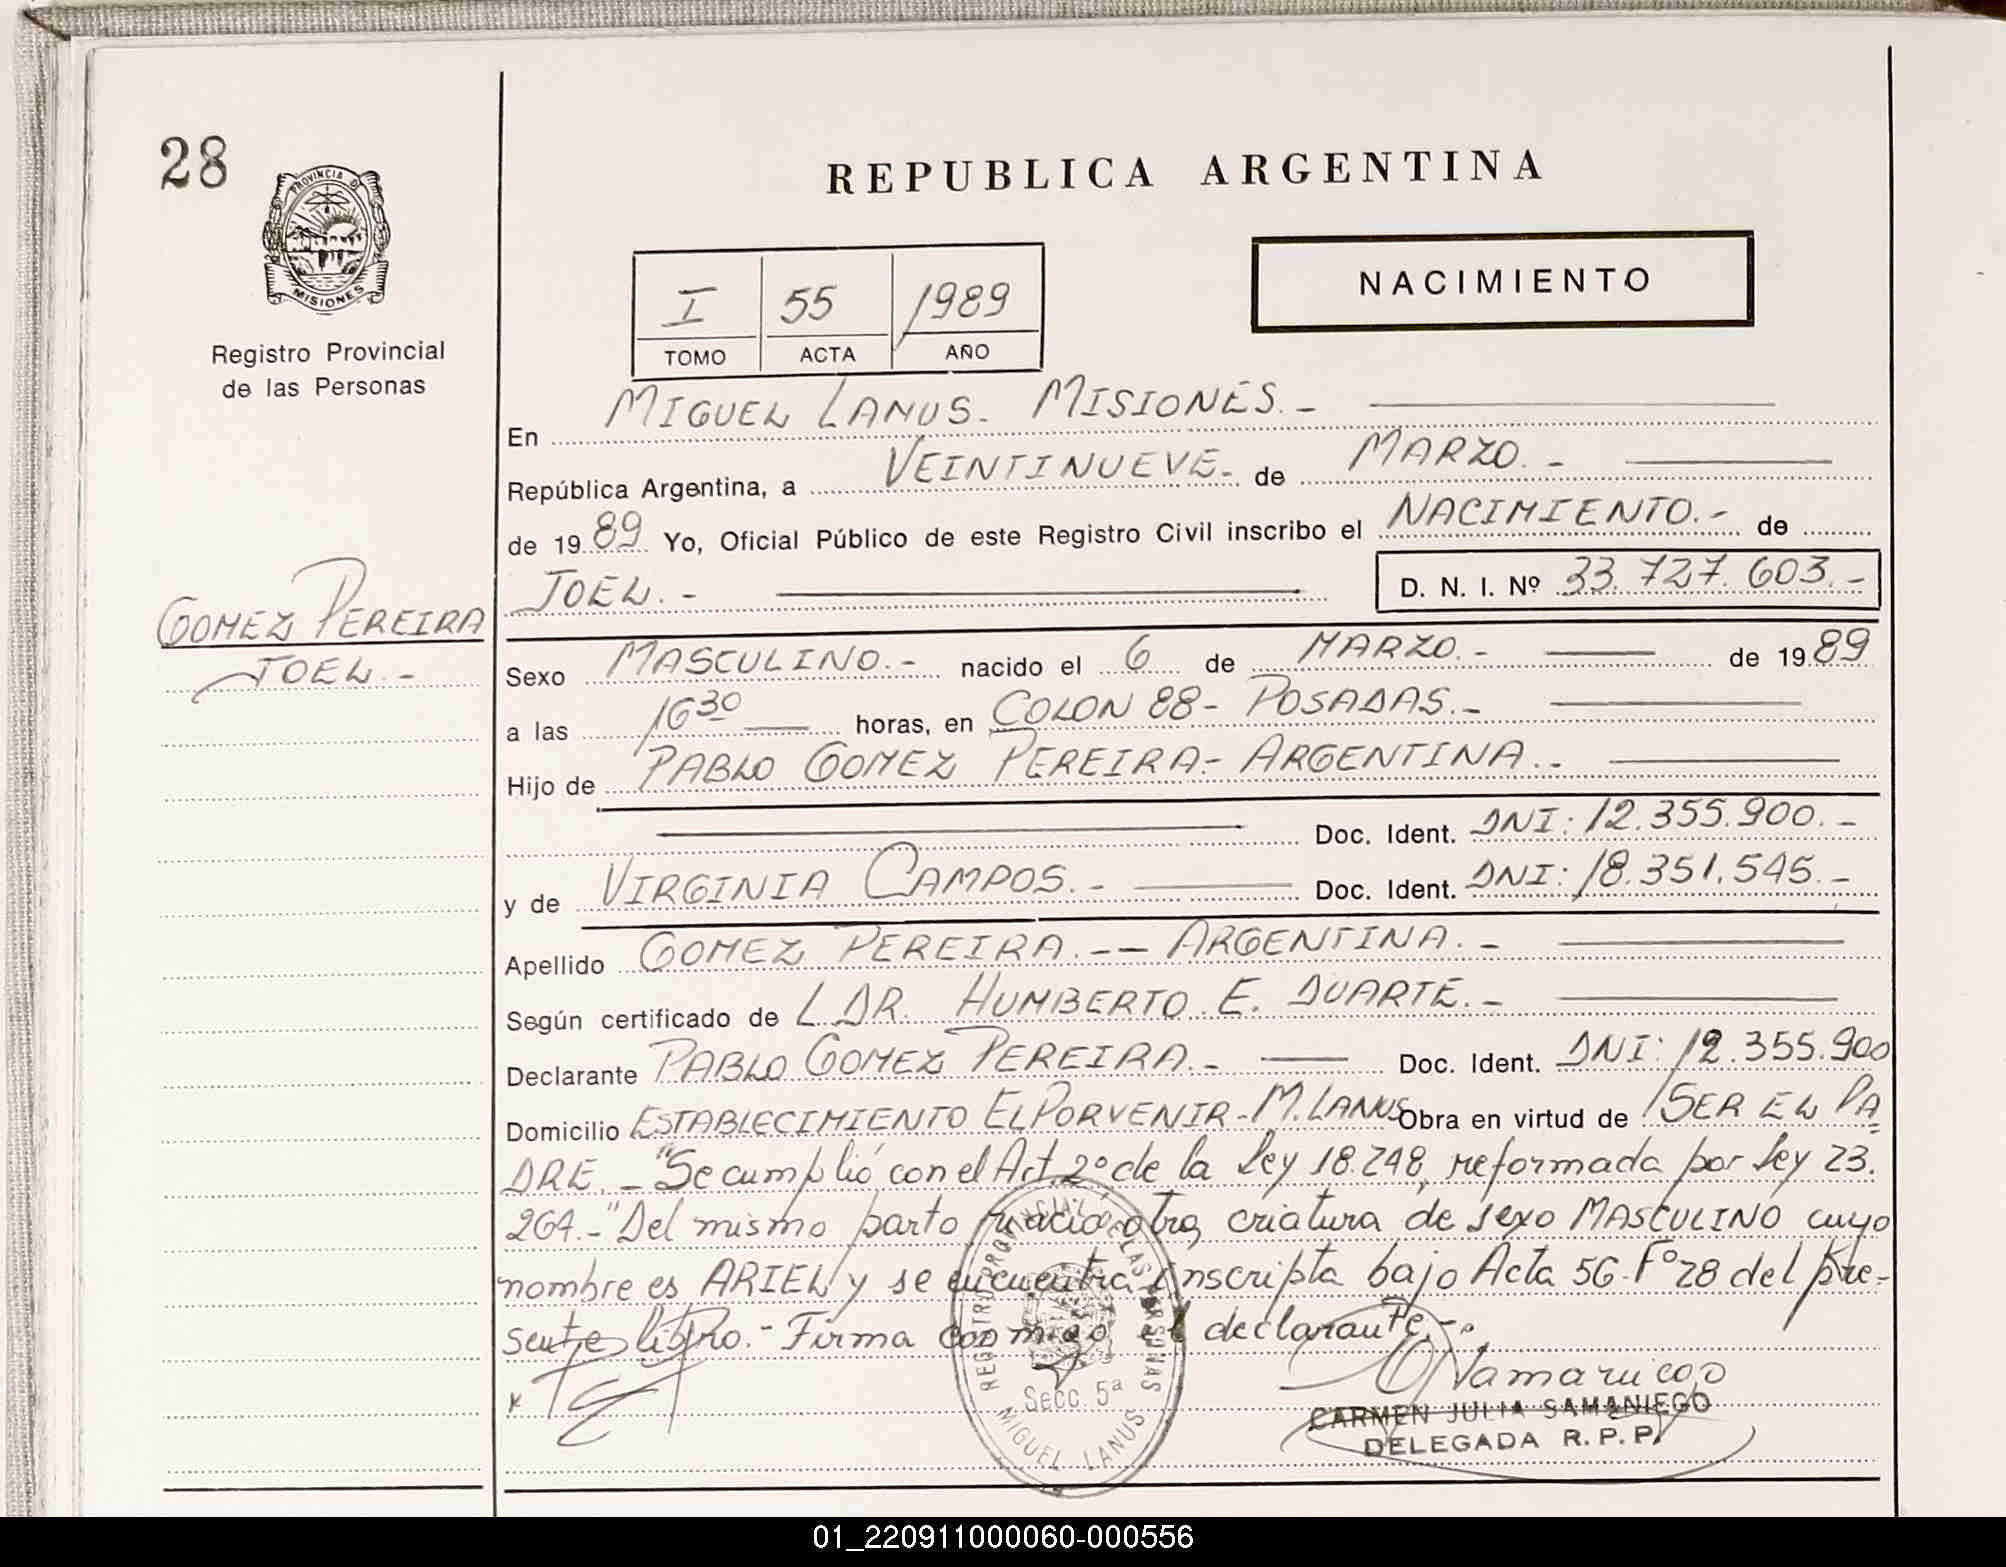 28
PROVINCIA D
MISIONES
Registro Provincial
de las Personas
REPUBLICA ARGENTINA
NACIMIENTO
I 55 1989
TOMO ACTA AÑO
En MIGUEL LANUS - MISIONES. -
República Argentina, a VEINTINUEVE - de MARZO. -
de 1989 Yo, Oficial Público de este Registro Civil inscribo el NACIMIENTO. - de
JOEL. - D. N. I. Nº 33.727.603. -
GOMEZ PEREIRA
JOEL. -
Sexo MASCULINO. - nacido el 6 de MARZO. - de 1989
a las 16 30 horas, en COLON 88 - POSADAS. -
Hijo de PABLO GOMEZ PEREIRA - ARGENTINA. -
Doc. Ident. DNI: 12.355.900. -
y de VIRGINIA CAMPOS. - Doc. Ident. DNI: 18.351.545. -
Apellido GOMEZ PEREIRA. -- ARGENTINA. -
Según certificado de L DR. HUMBERTO E. DUARTE. -
Declarante PABLO GOMEZ PEREIRA. - Doc. Ident. DNI: 12.355.900
Domicilio ESTABLECIMIENTO EL PORVENIR - M. LANUS Obra en virtud de SER EL PA=
DRE. - "Se cumplió con el Art. 2º de la Ley 18.248, reformada por Ley 23.
264. - "Del mismo parto nació otra criatura de sexo MASCULINO cuyo
nombre es ARIEL y se encuentra inscripta bajo Acta 56 - Fº 28 del pre-
sente libro. - Firma conmigo el declarante. -
REGISTRO PROVINCIAL DE LAS PERSONAS
Secc. 5ª
MIGUEL LANUS
CARMEN JULIA SAMANIEGO
DELEGADA R.P.P.
01_220911000060-000556